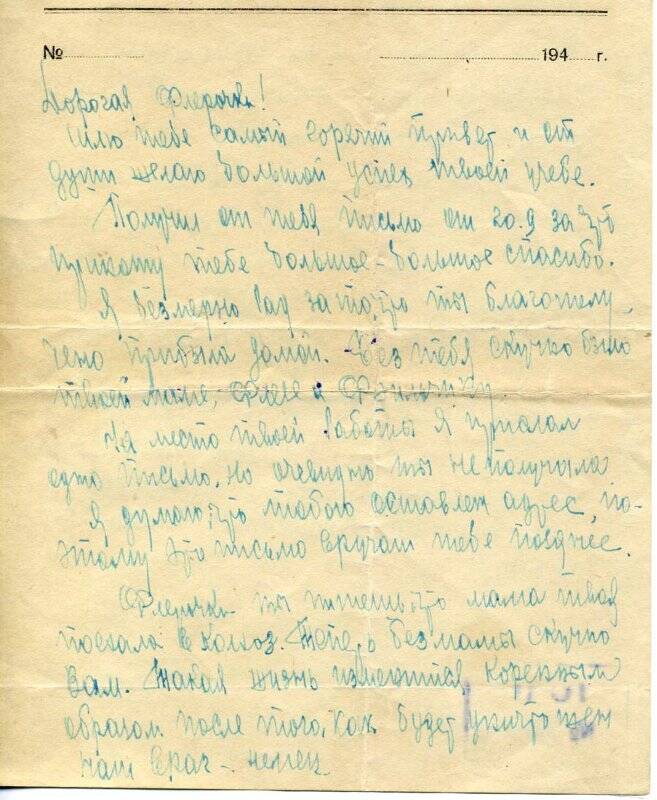 № 194 г.
Дорогая Флерочка!
Шлю тебе самый горячий привет и от
души желаю большой успех твоей учебе.
Получил от тебя письмо от 20.9 за что
приношу тебе большое-большое спасибо.
Я безмерно рад за то, что ты благополу-
чено прибыла домой. Без тебя скучно было
твоей маме, Флере и
На место твоей работы я прислал
одно письмо. Но очевидно ты не получила
Я думаю, что тобою оставлен адрес, по-
этому это письмо вручат тебе позднее.
Флерочка ты пишешь, что мама твоя
поехала в колхоз. Теперь без мамы скучно
Вам. Такая жизнь изменится коренным
образом после того, как будет уничтожен
наш враг - немец